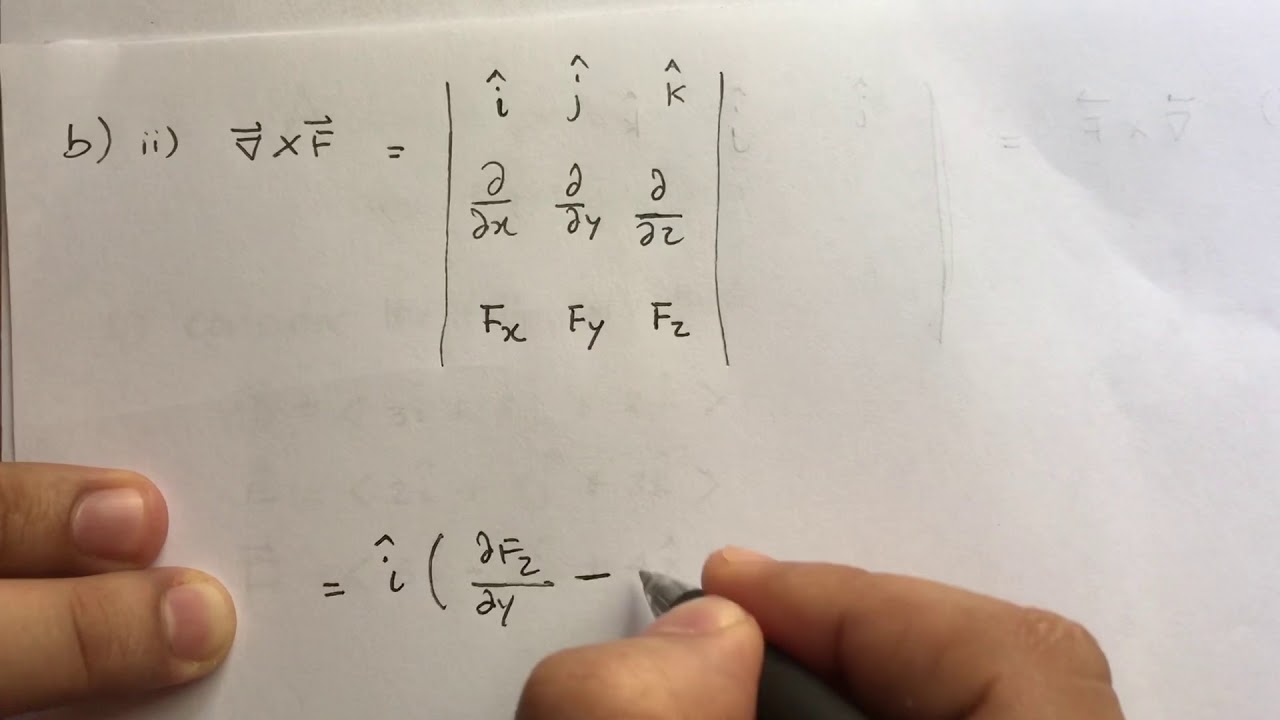 b) ii) ∇⃗ × F⃗ = | î ĵ k̂ |
∂/∂x ∂/∂y ∂/∂z
Fx Fy Fz
= î ( ∂Fz/∂y −